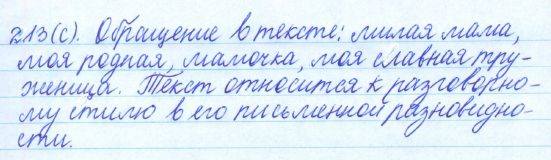 213(с). Обращение в тексте: милая мама,
моя родная, мамочка, моя славная тру-
женица. Текст относится к разговорно-
му стилю в его письменной разновидно-
сти.